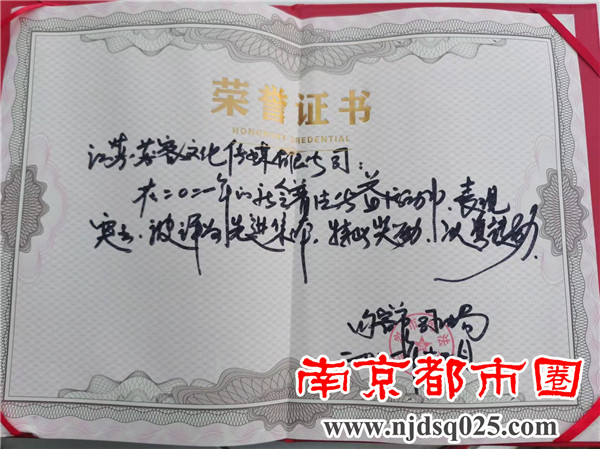 荣誉证书
HONO CREDENTIAL
江苏苏客文化传媒有限公司:
在二〇二一年的社会普法公益活动中,表现
突出,被评为先进集体,特此奖励,以资鼓励.
句容市司法局
南京都市圈
www.njdsq025.com